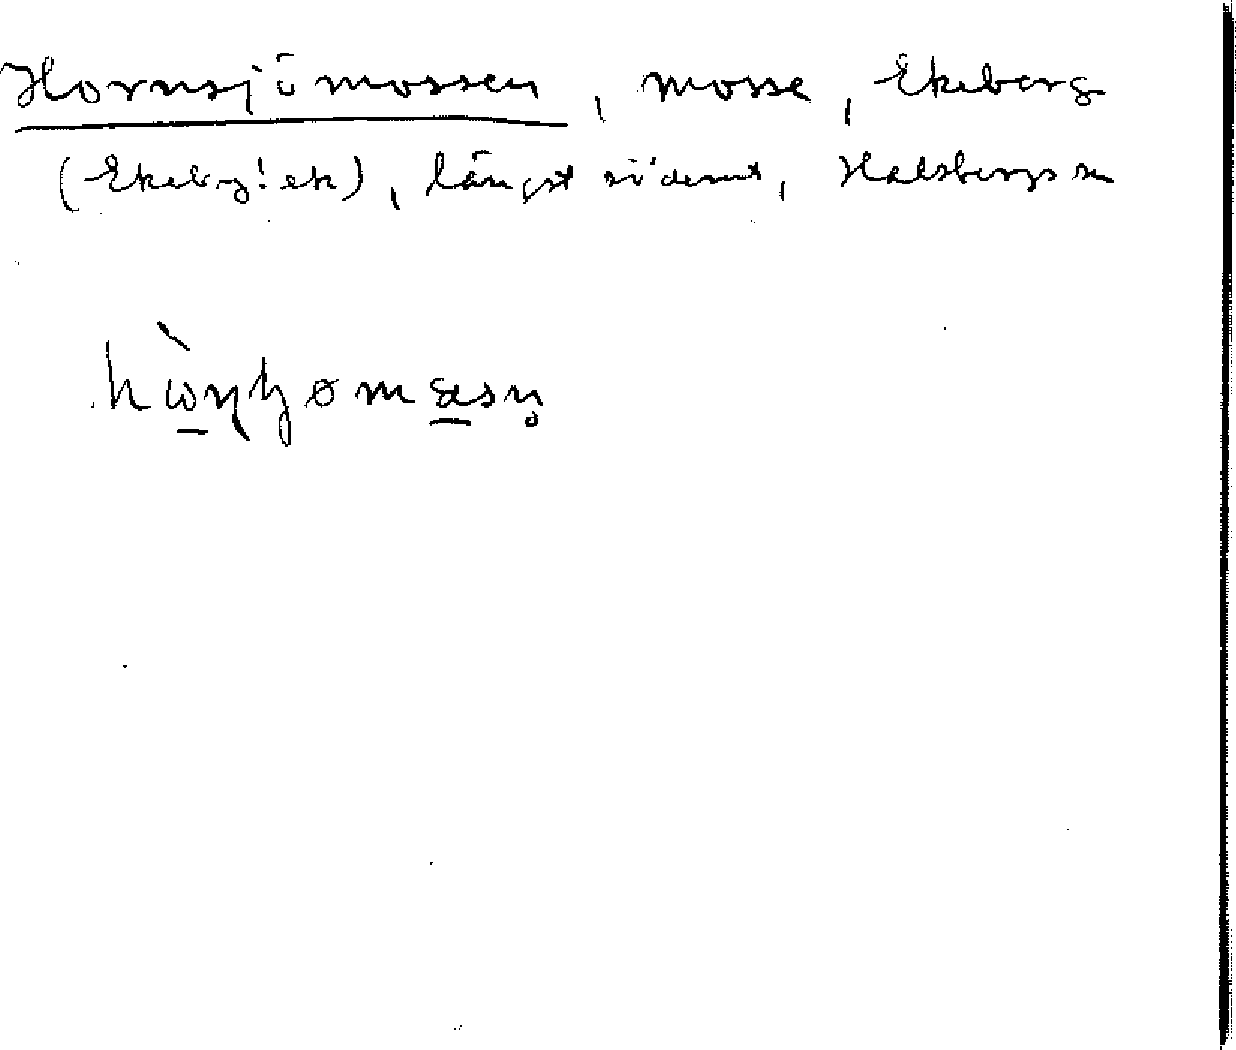 Hornsjömossen, mosse, Ekeberg
(Ekeby! ek), längst söderut, Halsbergs sn